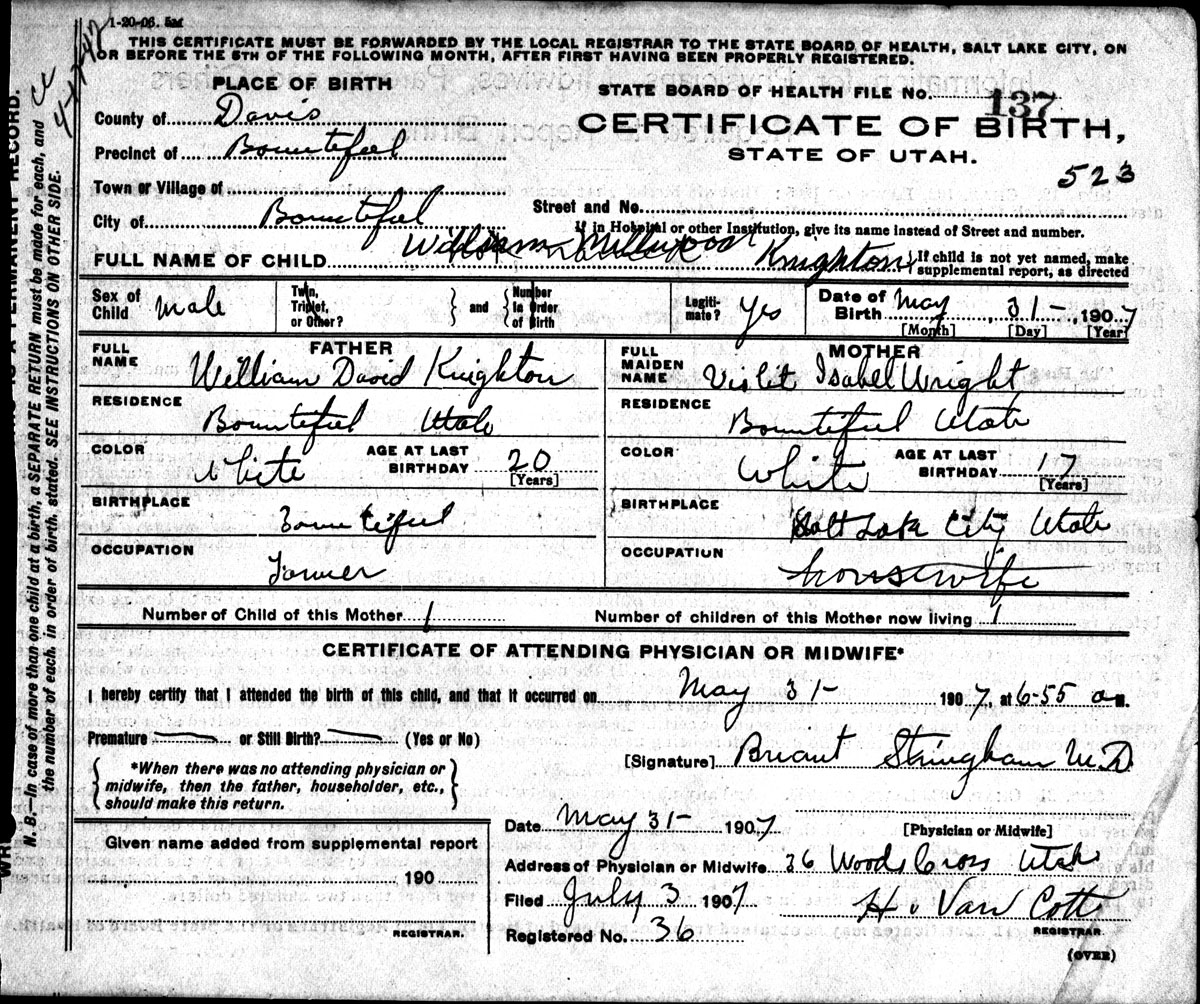 1-20-06. 5m
THIS CERTIFICATE MUST BE FORWARDED BY THE LOCAL REGISTRAR TO THE STATE BOARD OF HEALTH, SALT LAKE CITY, ON
OR BEFORE THE 5TH OF THE FOLLOWING MONTH, AFTER FIRST HAVING BEEN PROPERLY REGISTERED.
PLACE OF BIRTH
STATE BOARD OF HEALTH FILE No. 137
County of Davis
CERTIFICATE OF BIRTH,
Precinct of Bountiful
STATE OF UTAH.
523
Town or Village of
Street and No.
City of Bountiful
If in Hospital or other Institution, give its name instead of Street and number.
FULL NAME OF CHILD William Knighton
If child is not yet named, make
supplemental report, as directed
Sex of Child Male
Twin, Triplet, or Other?
and
Number in Order of Birth
Legitimate? Yes
Date of Birth May 31-, 1907
[Month] [Day] [Year]
FATHER
FULL NAME William David Knighton
RESIDENCE
Bountiful Utah
COLOR White
AGE AT LAST BIRTHDAY 20
[Years]
BIRTHPLACE
Bountiful
OCCUPATION
Farmer
MOTHER
FULL MAIDEN NAME Violit Isabel Wright
RESIDENCE
Bountiful Utah
COLOR White
AGE AT LAST BIRTHDAY 17
[Years]
BIRTHPLACE
Salt Lake City Utah
OCCUPATION
housewife
Number of Child of this Mother 1
Number of children of this Mother now living 1
CERTIFICATE OF ATTENDING PHYSICIAN OR MIDWIFE*
I hereby certify that I attended the birth of this child, and that it occurred on May 31- 1907, at 6-55 a M.
Premature — or Still Birth? — (Yes or No)
[Signature] Briant Stringham M.D.
*When there was no attending physician or
midwife, then the father, householder, etc.,
should make this return.
Date May 31- 1907
[Physician or Midwife]
Given name added from supplemental report
190
REGISTRAR.
Address of Physician or Midwife 36 Woods Cross Utah
Filed July 3 1907
H. Van Cott
REGISTRAR.
Registered No. 36
(OVER)
N. B.—In case of more than one child at a birth, a SEPARATE RETURN must be made for each, and
the number of each, in order of birth, stated. SEE INSTRUCTIONS ON OTHER SIDE.
IS A PERMANENT RECORD.